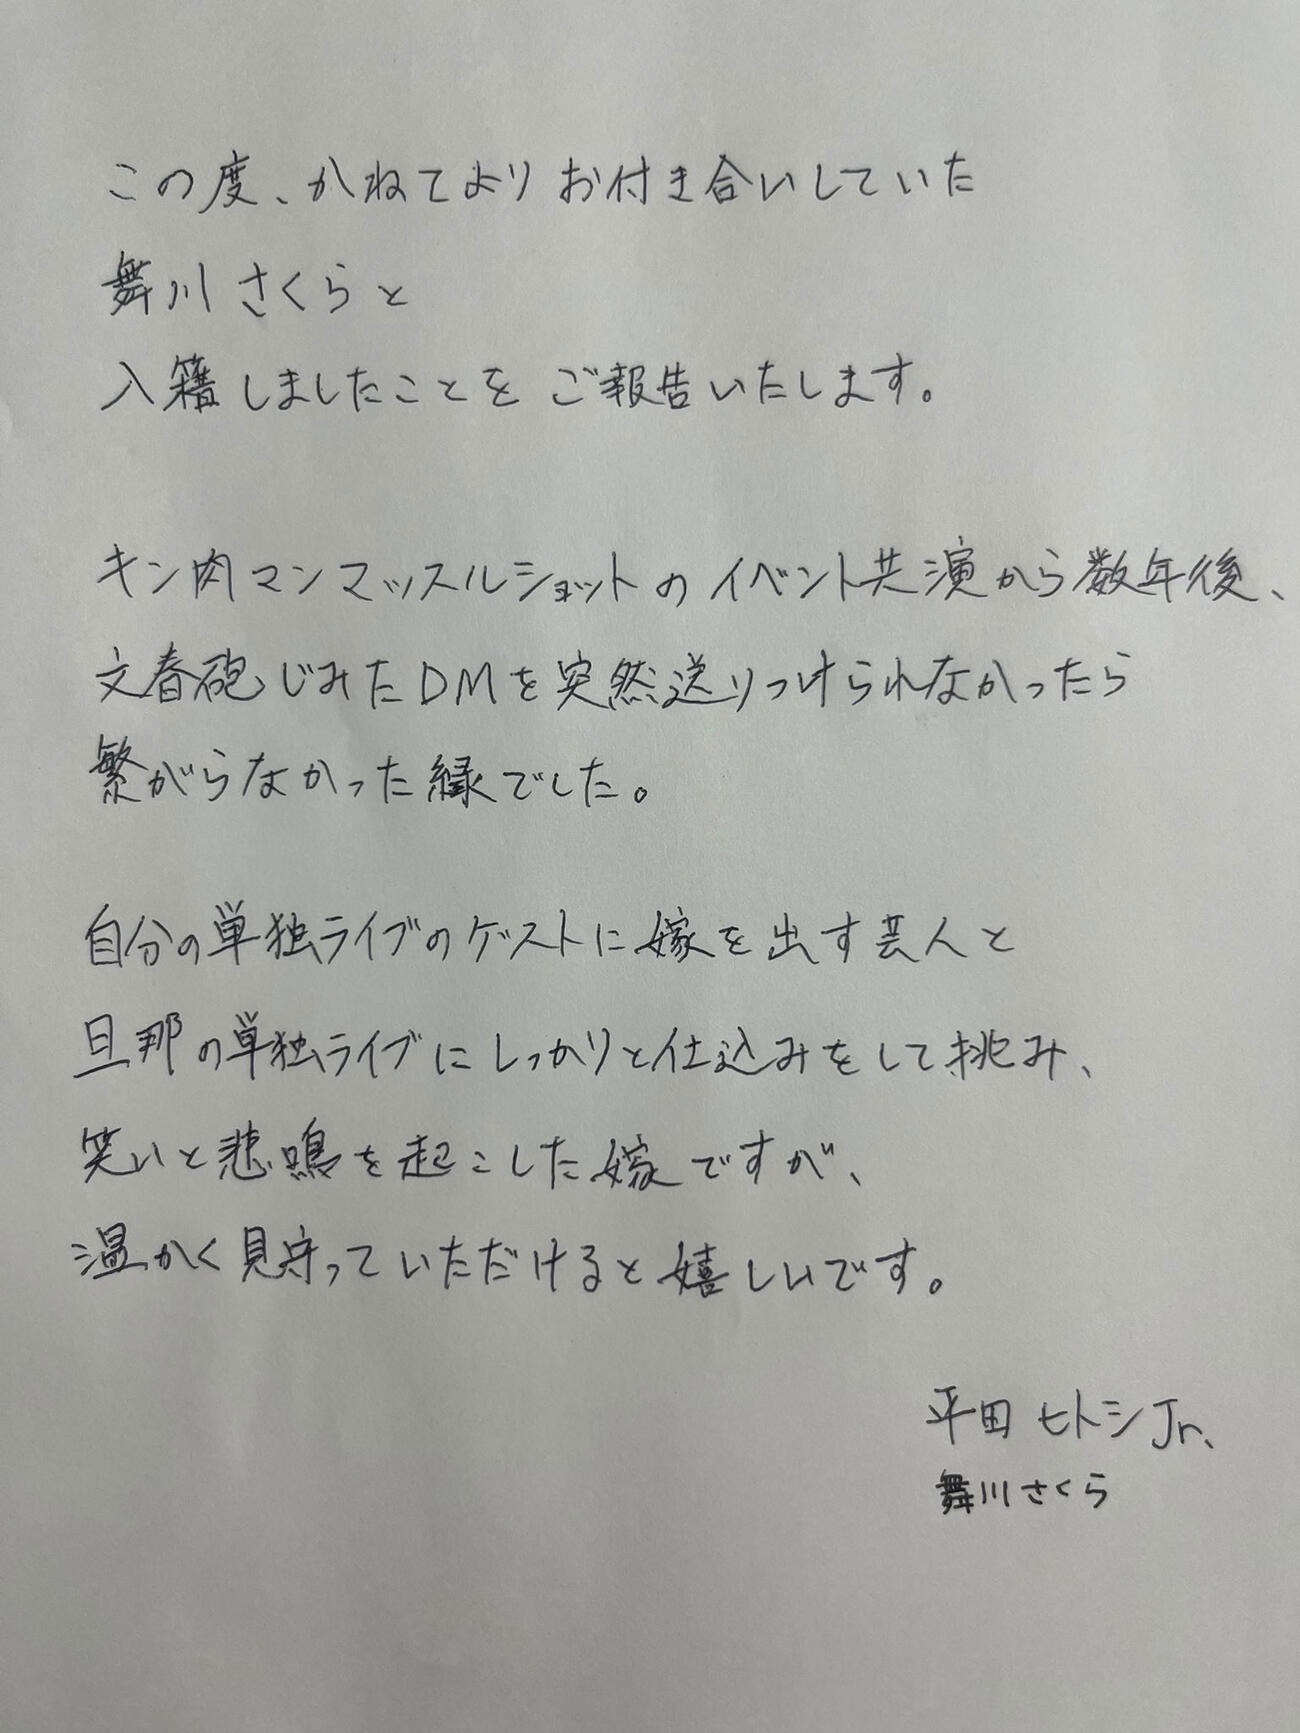 この度、かねてよりお付き合いしていた
舞川さくらと
入籍しましたことをご報告いたします。
キン肉マンマッスルショットのイベント共演から数年後、
文春砲じみたDMを突然送りつけられなかったら
繋がらなかった縁でした。
自分の単独ライブのゲストに嫁を出す芸人と
旦那の単独ライブにしっかりと仕込みをして挑み、
笑いと悲鳴を起こした嫁ですが、
温かく見守っていただけると嬉しいです。
平田ヒトシJr.
舞川さくら